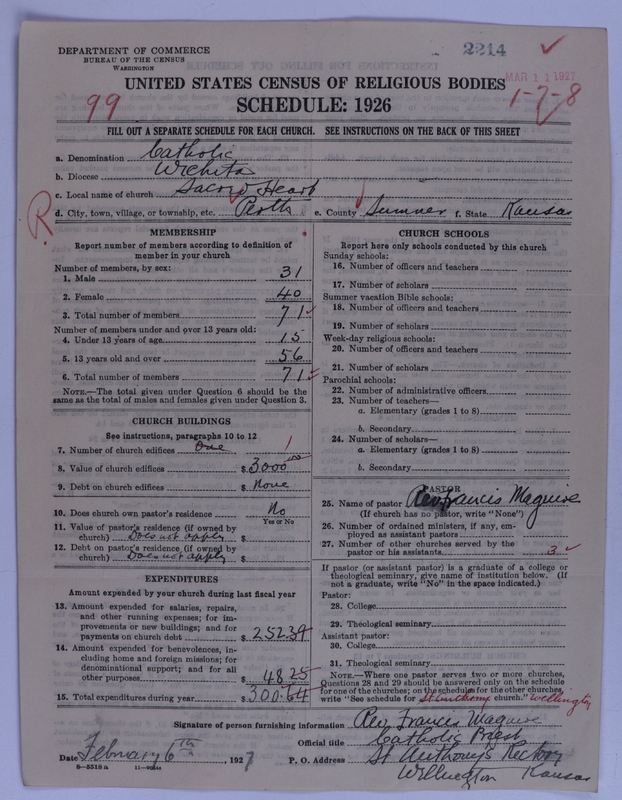 DEPARTMENT OF COMMERCE
BUREAU OF THE CENSUS
WASHINGTON
2214
MAR 11 1927
UNITED STATES CENSUS OF RELIGIOUS BODIES
99
SCHEDULE: 1926
1-7-8
FILL OUT A SEPARATE SCHEDULE FOR EACH CHURCH. SEE INSTRUCTIONS ON THE BACK OF THIS SHEET
a. Denomination Catholic
b. Diocese Wichita
c. Local name of church Sacred Heart
R
d. City, town, village, or township, etc. Perth e. County Sumner f. State Kansas
MEMBERSHIP
Report number of members according to definition of
member in your church
Number of members, by sex:
1. Male 31
2. Female 40
3. Total number of members 71
Number of members under and over 13 years old:
4. Under 13 years of age 15
5. 13 years old and over 56
6. Total number of members 71
NOTE.—The total given under Question 6 should be
same as the total of males and females given under Question 3.
CHURCH BUILDINGS
See instructions, paragraphs 10 to 12
7. Number of church edifices One 1
8. Value of church edifices $ 3000 00
9. Debt on church edifices $ None
10. Does church own pastor's residence No
Yes or No
11. Value of pastor's residence (if owned by
church) Does not apply $
12. Debt on pastor's residence (if owned by
church) Does not apply $
EXPENDITURES
Amount expended by your church during last fiscal year
13. Amount expended for salaries, repairs,
and other running expenses; for im-
provements or new buildings; and for
payments on church debt $ 252.39
14. Amount expended for benevolences, in-
cluding home and foreign missions; for
denominational support; and for all
other purposes $ 48.25
15. Total expenditures during year $ 300.64
CHURCH SCHOOLS
Report here only schools conducted by this church
Sunday schools:
16. Number of officers and teachers
17. Number of scholars
Summer vacation Bible schools:
18. Number of officers and teachers
19. Number of scholars
Week-day religious schools:
20. Number of officers and teachers
21. Number of scholars
Parochial schools:
22. Number of administrative officers
23. Number of teachers—
a. Elementary (grades 1 to 8)
b. Secondary
24. Number of scholars—
a. Elementary (grades 1 to 8)
b. Secondary
PASTOR
25. Name of pastor Rev Francis Maguire
(If church has no pastor, write "None")
26. Number of ordained ministers, if any, em-
ployed as assistant pastors
27. Number of other churches served by the
pastor or his assistants 3
If pastor (or assistant pastor) is a graduate of a college or
theological seminary, give name of institution below. (If
not a graduate, write "No" in the space indicated.)
Pastor:
28. College
29. Theological seminary
Assistant pastor:
30. College
31. Theological seminary
NOTE.—Where one pastor serves two or more churches,
Questions 28 and 29 should be answered only on the schedule
for one of the churches; on the schedules for the other churches,
write "See schedule for St Anthony church." Wellington
Signature of person furnishing information Rev. Francis Maguire
Official title Catholic Priest
Date February 6th, 1927 P. O. Address St Anthony's Rectory
8—5518 a
Wellington Kansas